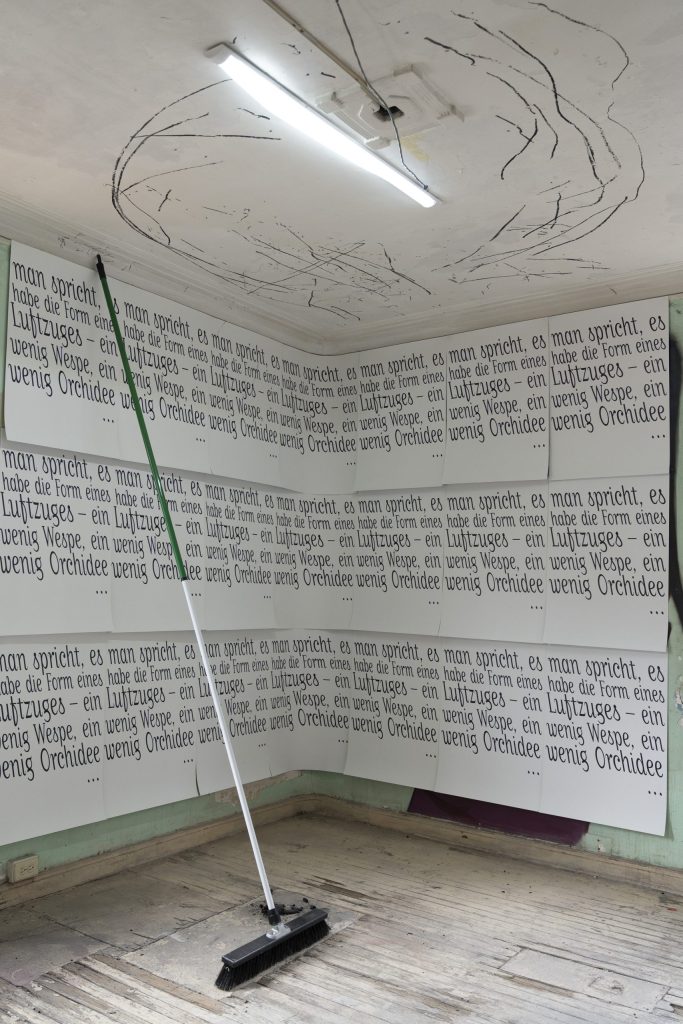 man spricht, es
habe die Form eines
Luftzuges – ein
wenig Wespe, ein
wenig Orchidee
...
man spricht, es
habe die Form eines
Luftzuges – ein
wenig Wespe, ein
wenig Orchidee
...
man spricht, es
habe die Form eines
Luftzuges – ein
wenig Wespe, ein
wenig Orchidee
...
man spricht, es
habe die Form eines
Luftzuges – ein
wenig Wespe, ein
wenig Orchidee
...
man spricht, es
habe die Form eines
Luftzuges – ein
wenig Wespe, ein
wenig Orchidee
...
man spricht, es
habe die Form eines
Luftzuges – ein
wenig Wespe, ein
wenig Orchidee
...
man spricht, es
habe die Form eines
Luftzuges – ein
wenig Wespe, ein
wenig Orchidee
...
man spricht, es
habe die Form eines
Luftzuges – ein
wenig Wespe, ein
wenig Orchidee
...
man spricht, es
habe die Form eines
Luftzuges – ein
wenig Wespe, ein
wenig Orchidee
...
man spricht, es
habe die Form eines
Luftzuges – ein
wenig Wespe, ein
wenig Orchidee
...
man spricht, es
habe die Form eines
Luftzuges – ein
wenig Wespe, ein
wenig Orchidee
...
man spricht, es
habe die Form eines
Luftzuges – ein
wenig Wespe, ein
wenig Orchidee
...
man spricht, es
habe die Form eines
Luftzuges – ein
wenig Wespe, ein
wenig Orchidee
...
man spricht, es
habe die Form eines
Luftzuges – ein
wenig Wespe, ein
wenig Orchidee
...
man spricht, es
abe die Form eines
uftzuges – ein
enig Wespe, ein
enig Orchidee
...
man spricht, es
habe die Form eines
Luftzuges – ein
wenig Wespe, ein
wenig Orchidee
...
man spricht, es
habe die Form eines
Luftzuges – ein
wenig Wespe, ein
wenig Orchidee
...
man spricht, es
habe die Form eines
Luftzuges – ein
wenig Wespe, ein
wenig Orchidee
...
man spricht, es
habe die Form eines
Luftzuges – ein
wenig Wespe, ein
wenig Orchidee
...
man spricht, es
habe die Form eines
Luftzuges – ein
wenig Wespe, ein
wenig Orchidee
...
man spricht, es
habe die Form eines
Luftzuges – ein
wenig Wespe, ein
wenig Orchidee
...